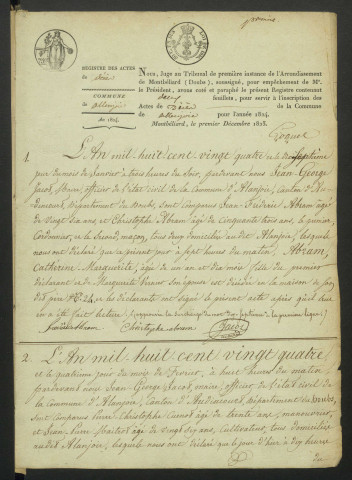 REGISTRE DES ACTES
de Décès
COMMUNE
de allenjoie
an 1824.
Nous, Juge au Tribunal de première instance de l'Arrondissement
de Montbéliard (Doubs), soussigné, pour empêchement de Mr.
le Président, avons coté et paraphé le présent Registre contenant
feuillets, pour servir à l'inscription des
Actes de Décès de la Commune
de allenjoie pour l'année 1824.
Montbéliard, le premier Décembre 1823.
1. L'An mil huit cent vingt quatre et le
jour du mois de Janvier à trois heures du Soir, pardevant nous Jean George
Jacob, maire, officier de l'état civil de la Commune d'Alanjoie, Canton d'Au-
dincourt, Département du Doubs, sont Comparus Jean Fréderic Abram âgé
de vingt six ans, et Christophe Abram âgé de Cinquante trois ans, le premier
Cordonnier, et le Second, maçon, tous deux domiciliés au dit Alanjoie, lesquels
nous ont déclaré que ce présent jour à sept heures du matin, Abram,
Catherine Marguerite, âgé de un an et dix mois fille du premier
déclarant et de Marguerite son épouse est décédée en la maison de
N° 24, et les déclarants ont signé le présent acte après qu'il leur
en a été fait lecture.
Christophe abram Jacob
2. L'An mil huit cent vingt quatre
et le quatrième jour du mois de Février, à huit heures du matin,
pardevant nous Jean George Jacob, maire, officier de l'état civil de
la Commune d'Alanjoie, Canton d'Audincourt, Département du Doubs,
sont Comparus Pierre Christophe Carnot âgé de trente ans, manouvrier,
et Jean Pierre âgé de vingt six ans, Cultivateur, tous domiciliés
audit Alanjoie, lesquels nous ont déclaré que le jour d'hier à dix heures
du